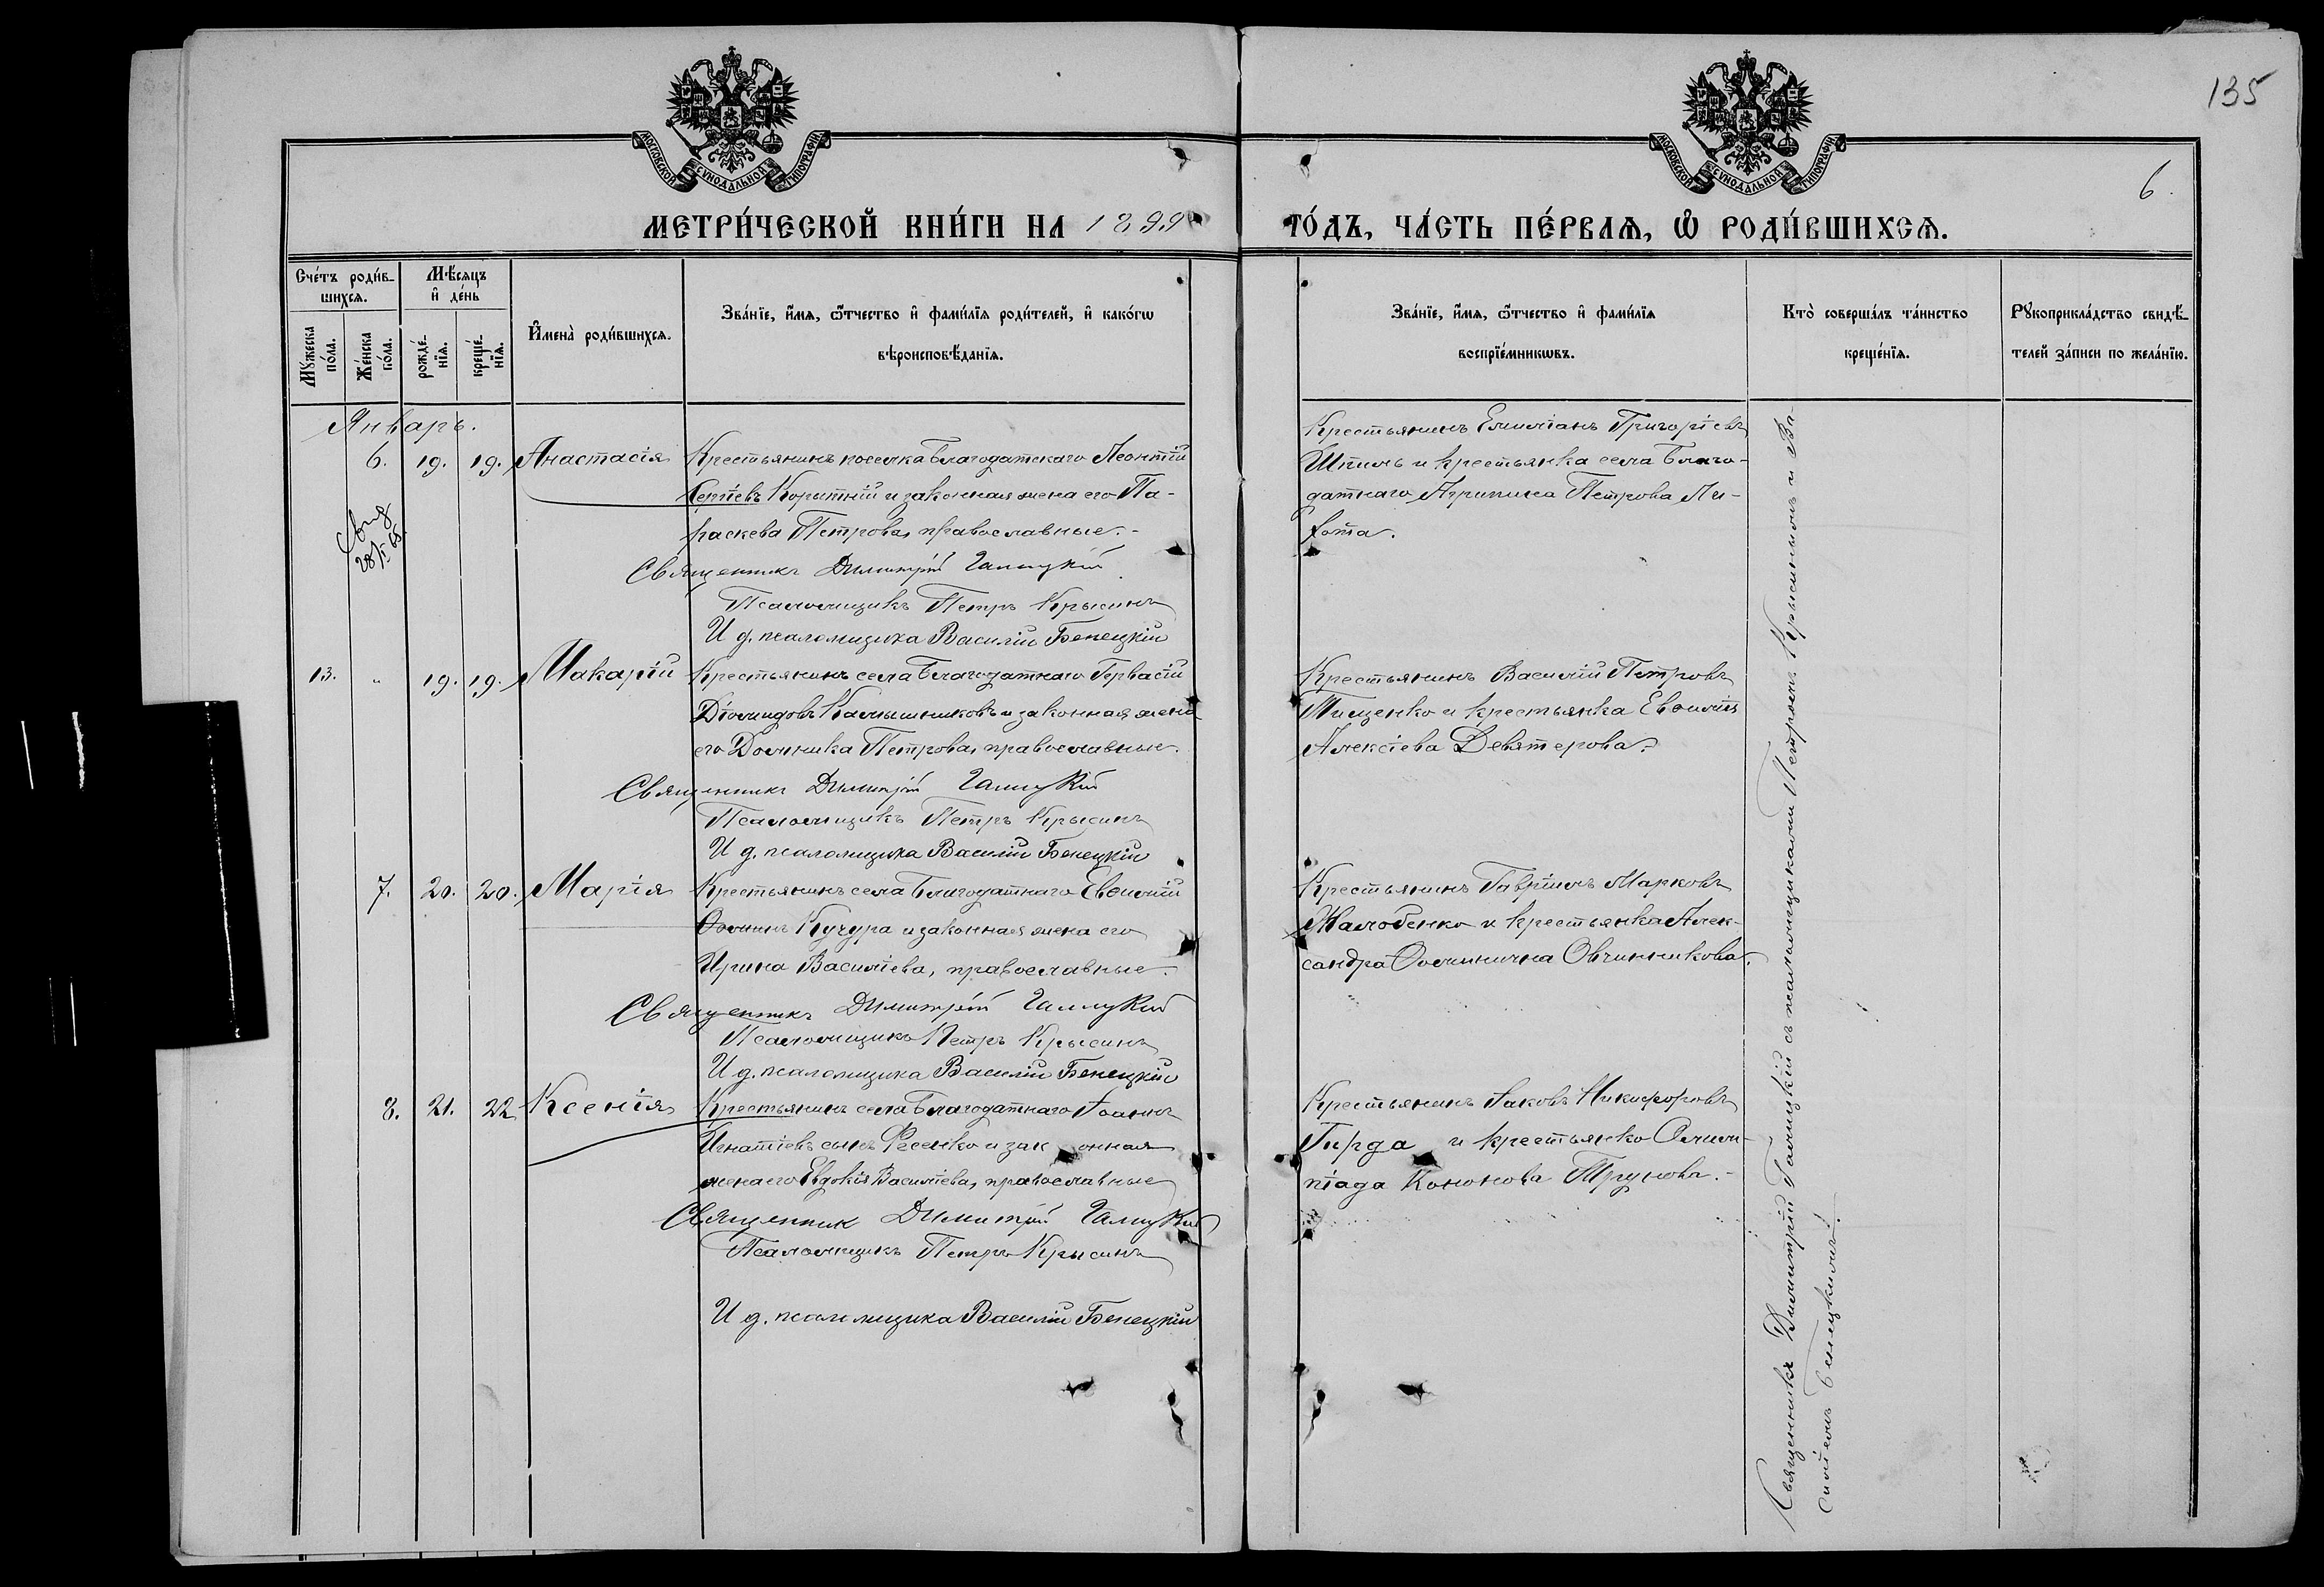 135
6.
МОСКОВСКОЙ СУНОДАЛЬНОЙ ТИПОГРАФИИ
МОСКОВСКОЙ СУНОДАЛЬНОЙ ТИПОГРАФИИ
МЕТРИ́ЧЕСКОЙ КНИ́ГИ НА 1899 ГО́ДЪ, ЧА́СТЬ ПЕ́РВАѦ, Ѡ҆ РОДИ́ВШИХСѦ.
Сче́тъ роди́вшихсѧ.
Мꙋ́жеска по́ла.
Же́нска по́ла.
Мѣ́сѧцъ и҆ де́нь
рожде́нїѧ.
креще́нїѧ.
И҆мена̀ роди́вшихсѧ.
Зва́нїе, и҆́мѧ, ѻ҆́тчество и҆ фами́лїѧ роди́телей, и҆ како́гѡ
вѣроисповѣ́данїѧ.
Зва́нїе, и҆́мѧ, ѻ҆́тчество и҆ фами́лїѧ
воспрїе́мникѡвъ.
Кто̀ соверша́лъ та́инство
креще́нїѧ.
Рꙋкоприкла́дство свидѣ́-
телей за́писи по жела́нїю.
Январь.
6. 19. 19. Анастасія
Крестьянинъ поселка Благодатскаго Леонтій
Сергіевъ Корытній и законная жена его Па-
раскева Петрова, православные.-
Священникъ Димитрій Галицкій
Псаломщикъ Петръ Крысинъ
И д. псаломщика Василій Бенецкій
Крестьянинъ Емиліанъ Григоріевъ
Шпиль и крестьянка села Благо-
датнаго Агрипина Петрова Ли-
хота.
28/I 65.
13. " 19. 19. Макарій
Крестьянинъ села Благодатнаго Гервасій
Діомидовъ Камышниковъ и законная жена
его Домника Петрова, православные.
Священникъ Димитрій Галицкій
Псаломщикъ Петръ Крысинъ
И д. псаломщика Василій Бенецкій
Крестьянинъ Василій Петровъ
Тищенко и крестьянка Евфимія
Алексіева Девятерова.
7. 20. 20. Марія
Крестьянинъ села Благодатнаго Евфимій
Фоминъ Кучура и законная жена его
Ирина Васильева, православные.
Священникъ Димитрій Галицкій
Псаломщикъ Петръ Крысинъ
И д. псаломщика Василій Бенецкій
Крестьянинъ Гавріилъ Марковъ
Жалобенко и крестьянка Алек-
сандра Фоминична Овчинникова.
8. 21. 22 Ксенія
Крестьянинъ села Благодатнаго Іоаннъ
Игнатіевъ сынъ Фесенко и законная
жена его Евдокія Васильева, православные
Священник Димитрій Галицкій
Псаломщикъ Петръ Крысинъ
И д. псаломщика Василій Бенецкій
Крестьянинъ Іаковъ Никифоровъ
Гирда и крестьянка Олим-
піада Кононова Трунова.-
Священникъ Димитрій Галицкій съ псаломщиками Петромъ Крысинымъ и Ва-
силіемъ Бенецкимъ.